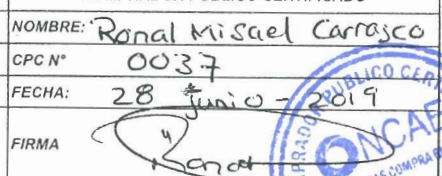 NOMBRE: Ronal Misael Carrasco
CPC N° 0037
FECHA: 28 Junio - 2019
FIRMA Ronal
PUBLICO CERT
ONCAE